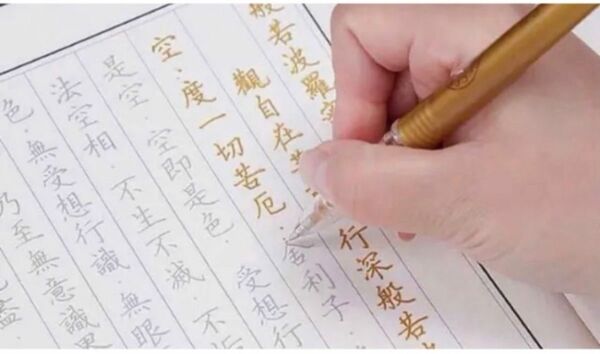 般若波羅
觀自在菩行深般若波
空·度一切苦厄·舍利子·
是空·空即是色·受想行
法空相·不生不滅·不垢
色·無受想行識·無眼
乃至無意識界
盡